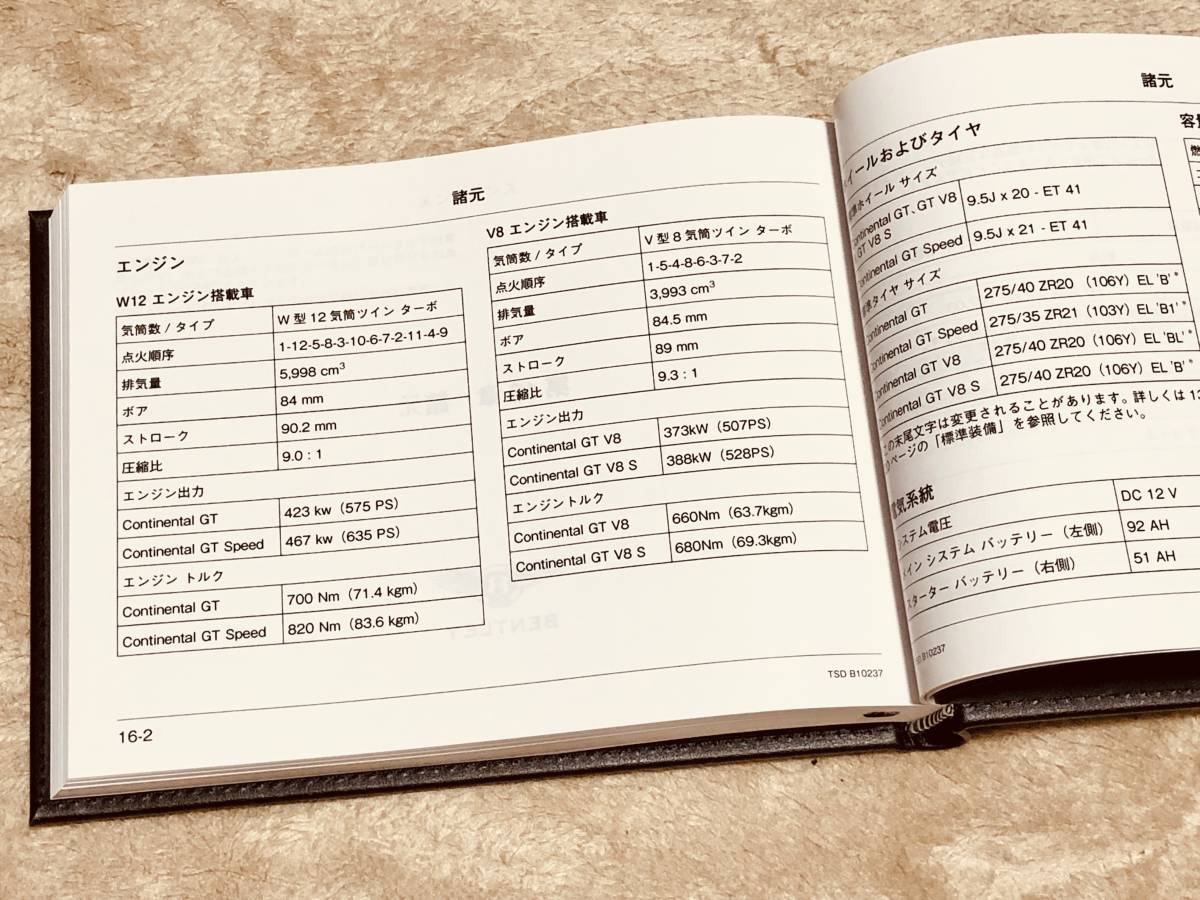 諸元
エンジン
W12 エンジン搭載車
気筒数 / タイプ W 型 12 気筒ツイン ターボ
点火順序 1-12-5-8-3-10-6-7-2-11-4-9
排気量 5,998 cm3
ボア 84 mm
ストローク 90.2 mm
圧縮比 9.0 : 1
エンジン出力
Continental GT 423 kw（575 PS）
Continental GT Speed 467 kw（635 PS）
エンジン トルク
Continental GT 700 Nm（71.4 kgm）
Continental GT Speed 820 Nm（83.6 kgm）
V8 エンジン搭載車
気筒数 / タイプ V 型 8 気筒ツイン ターボ
点火順序 1-5-4-8-6-3-7-2
排気量 3,993 cm3
ボア 84.5 mm
ストローク 89 mm
圧縮比 9.3 : 1
エンジン出力
Continental GT V8 373kW（507PS）
Continental GT V8 S 388kW（528PS）
エンジントルク
Continental GT V8 660Nm（63.7kgm）
Continental GT V8 S 680Nm（69.3kgm）
TSD B10237
16-2
諸元
イールおよびタイヤ
準ホイール サイズ
Continental GT、GT V8
GT V8 S 9.5J x 20 - ET 41
Continental GT Speed 9.5J x 21 - ET 41
準タイヤ サイズ
Continental GT 275/40 ZR20（106Y）EL 'B' *
Continental GT Speed 275/35 ZR21（103Y）EL 'B1' *
Continental GT V8 275/40 ZR20（106Y）EL 'BL' *
Continental GT V8 S 275/40 ZR20（106Y）EL 'B' *
の末尾文字は変更されることがあります。詳しくは 13
ページの「標準装備」を参照してください。
電気系統
システム電圧 DC 12 V
イン システム バッテリー（左側） 92 AH
スターター バッテリー（右側） 51 AH
SD B10237
容量